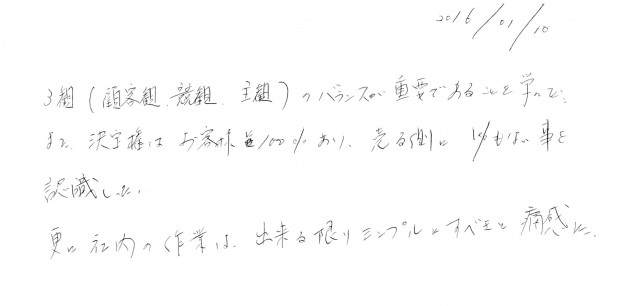 2016/01/10
3組(顧客組、競組、主組)のバランスが重要であることを学んだ。
また、決定権はお客様100%あり、売る側に1%もない事を
認識した。
更に社内の作業は、出来る限りシンプルにすべきと痛感した。